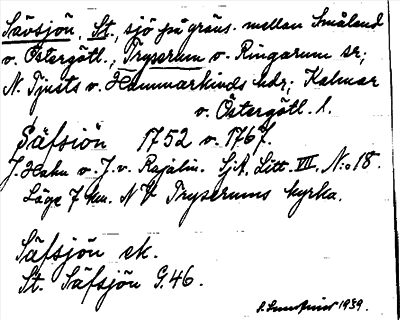 Sävsjön, St., sjö på gräns. mellan Småland
o. Östergötl., Tryserum o. Ringarum sr;
N. Tjusts o. Hammarkinds hdr; Kalmar
o. Östergötl. l.
Säfsiön 1752 o. 1767.
J. Hahn o. J. v. Rajalin. SjA. Litt. VII. No 18.
Läge 7 km. NV Tryserums kyrka.
Säfsjön ek.
St. Säfsjön G.46.
1939.